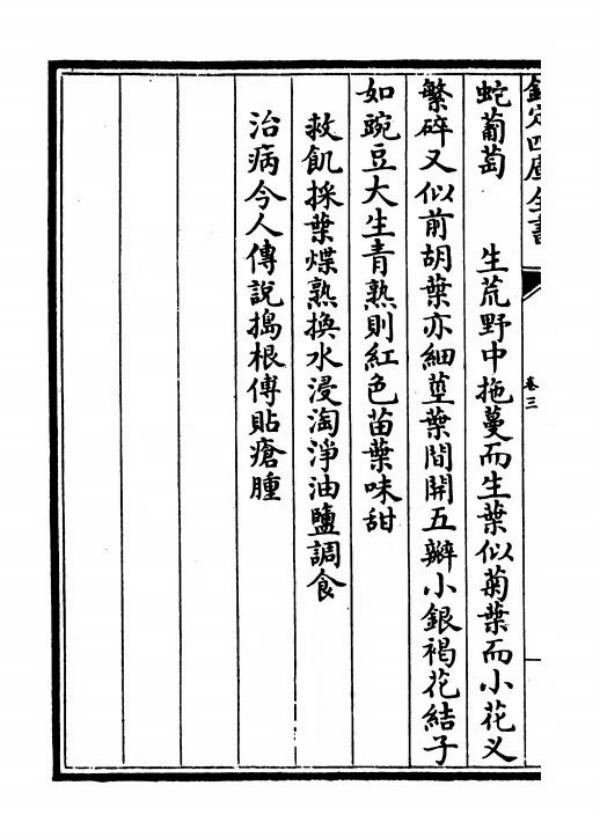 欽定四庫全書
卷三
蛇葡萄 生荒野中拖蔓而生葉似菊葉而小花叉
繁碎又似前胡葉亦細莖葉間開五瓣小銀褐花結子
如豌豆大生青熟則紅色苗葉味甜
救飢採葉煠熟換水浸淘淨油鹽調食
治病今人傳說搗根傅貼瘡腫